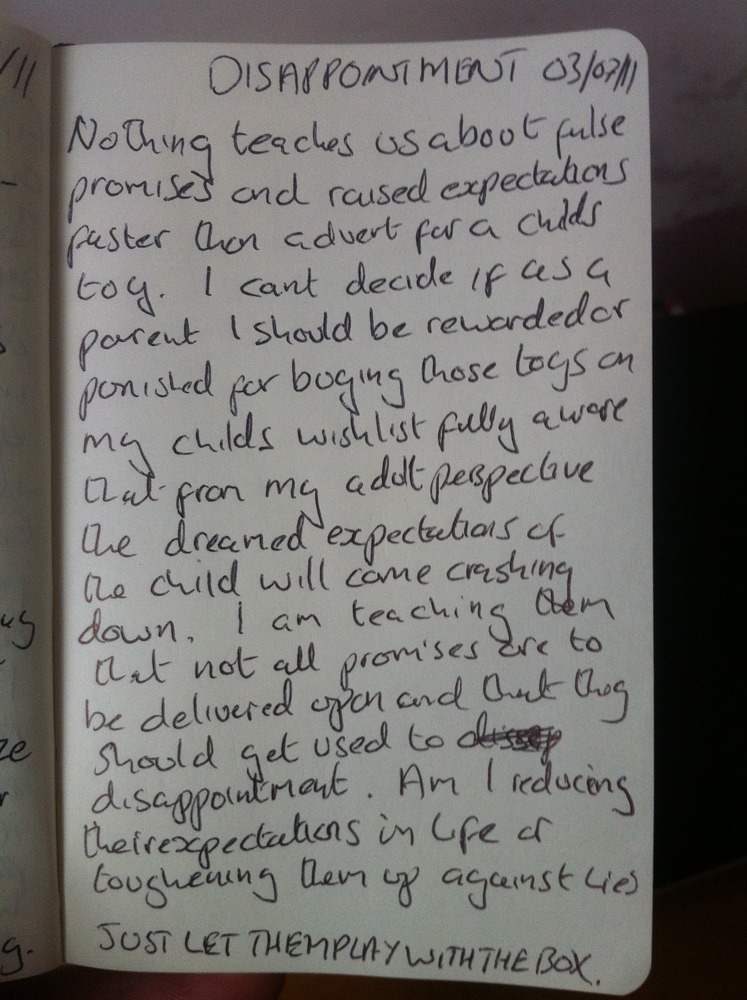 DISAPPOINTMENT 03/07/11
Nothing teaches us about false
promises and raised expectations
faster than advert for a childs
toy. I cant decide if as a
parent I should be rewarded or
punished for buying those toys on
my childs wishlist fully aware
that from my adult perspective
the dreamed expectations of
the child will come crashing
down. I am teaching them
that not all promises are to
be delivered upon and that they
should get used to
disappointment. Am I reducing
their expectations in life or
toughening them up against lies
JUST LET THEM PLAY WITH THE BOX.